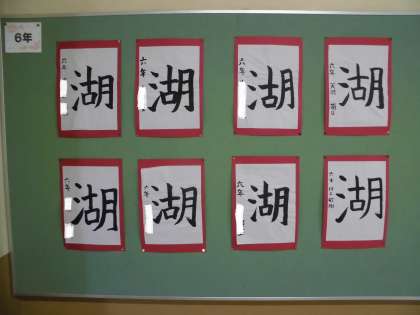 6年
六年
湖
六年
湖
六年
湖
六年
湖
六年
湖
六年
湖
六年
湖
六年
湖